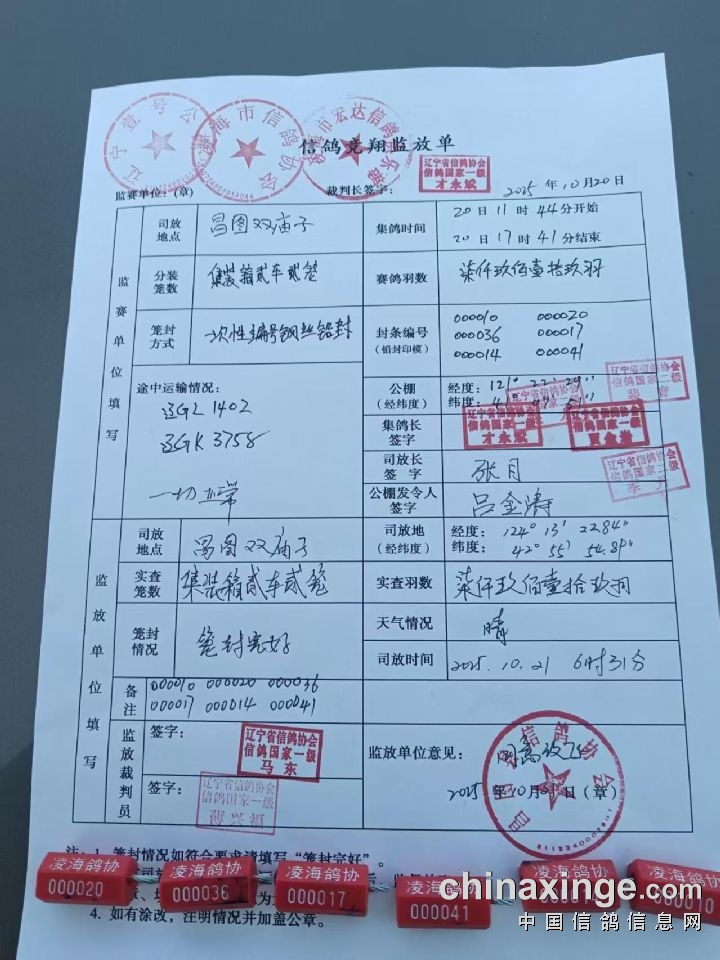 信鸽竞翔监放单
辽宁壹号公
海市信鸽协会
市宏达信鸽俱乐部
监赛单位：(章)
裁判长签字：
辽宁省信鸽协会
信鸽国家一级
才永斌
2025 年 10月20日
监赛单位填写
司放地点
昌图双庙子
集鸽时间
20日11时44分开始
20日17时41分结束
分装笼数
集装箱贰车贰笼
赛鸽羽数
柒仟玖佰壹拾玖羽
笼封方式
一次性编号钢丝铅封
封条编号
(铅封印模)
000010 000020
000036 000017
000014 000041
途中运输情况：
辽GL 1402
辽GK 3758
一切正常
公棚
(经纬度)
经度：121° 22' 29''
纬度：
辽宁省信鸽协会
信鸽国家二级
集鸽长签字
辽宁省信鸽协会
信鸽国家一级
才永斌
辽宁省信鸽协会
信鸽国家一级
司放长签字
张月
辽宁省信鸽协会
信鸽国家二级
李
公棚发令人签字
吕金涛
监放单位填写
司放地点
昌图双庙子
司放地
(经纬度)
经度：124° 13' 22.84''
纬度：42° 55' 54.84''
实查笼数
集装箱贰车贰笼
实查羽数
柒仟玖佰壹拾玖羽
笼封情况
笼封完好
天气情况
晴
司放时间
2025.10.21 6时31分
备注
000010 000020 000036
000017 000014 000041
监放裁判员
签字：
辽宁省信鸽协会
信鸽国家一级
马东
签字：
辽宁省信鸽协会
信鸽国家一级
薄兴福
监放单位意见：
同意放飞
2025年10月21日（章）
信鸽协会
注：1. 笼封情况如符合要求请填写“笼封完好”。
4. 如有涂改，注明情况并加盖公章。
凌海鸽协
000020
凌海鸽协
000036
凌海鸽协
000017
凌海鸽协
000041
凌海鸽协
凌海鸽协
000010
chinaxinge.com
中国信鸽信息网